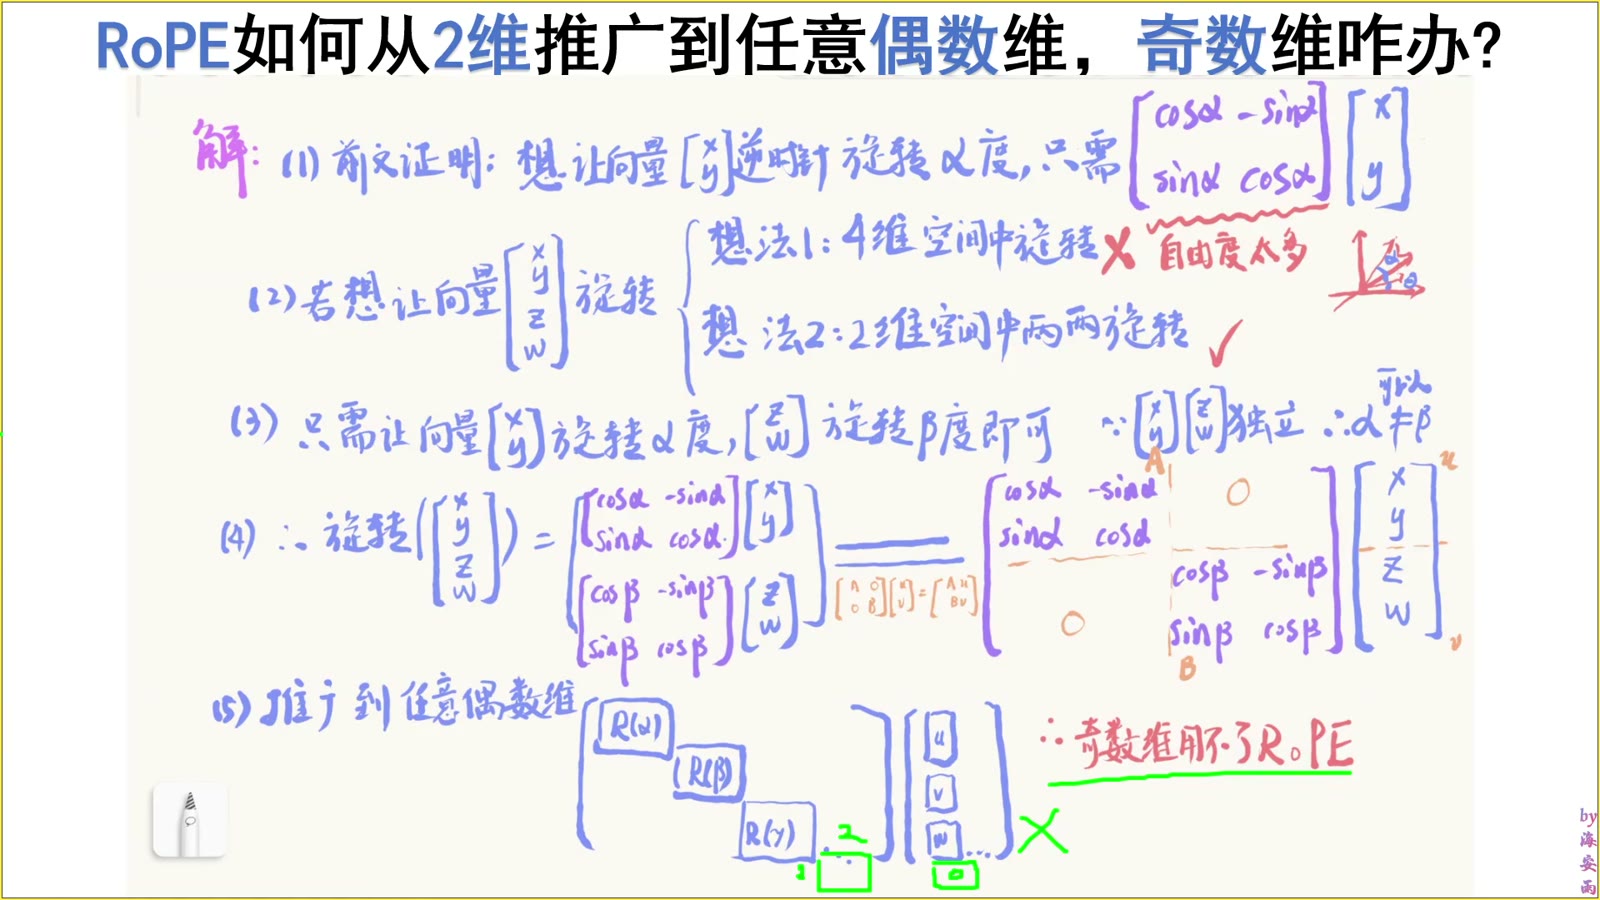 RoPE如何从2维推广到任意偶数维，奇数维咋办?
解: (1) 前文证明: 想让向量 [x y] 逆时针旋转α度, 只需 [cosα -sinα sinα cosα] [x y]
(2) 若想让向量 [x y z w] 旋转
想法1: 4维空间中旋转 X 自由度太多
想法2: 2维空间中两两旋转 ✓
(3) 只需让向量 [x y] 旋转α度, [z w] 旋转β度即可 ∵ [x y] [z w] 独立 ∴ α 可以 ≠ β
(4) ∴ 旋转([x y z w]) = [[cosα -sinα sinα cosα] [x y] [cosβ -sinβ sinβ cosβ] [z w]]
[A 0 0 B] [u v] = [Au Bv]
A u
[cosα -sinα 0
sinα cosα
cosβ -sinβ
0 sinβ cosβ] [x y z w]
B v
(5) 推广到任意偶数维 [R(α) R(β) R(γ) ...] [u v w ...] X
2
1 0
∴ 奇数维用不了RoPE
by
海
安
雨